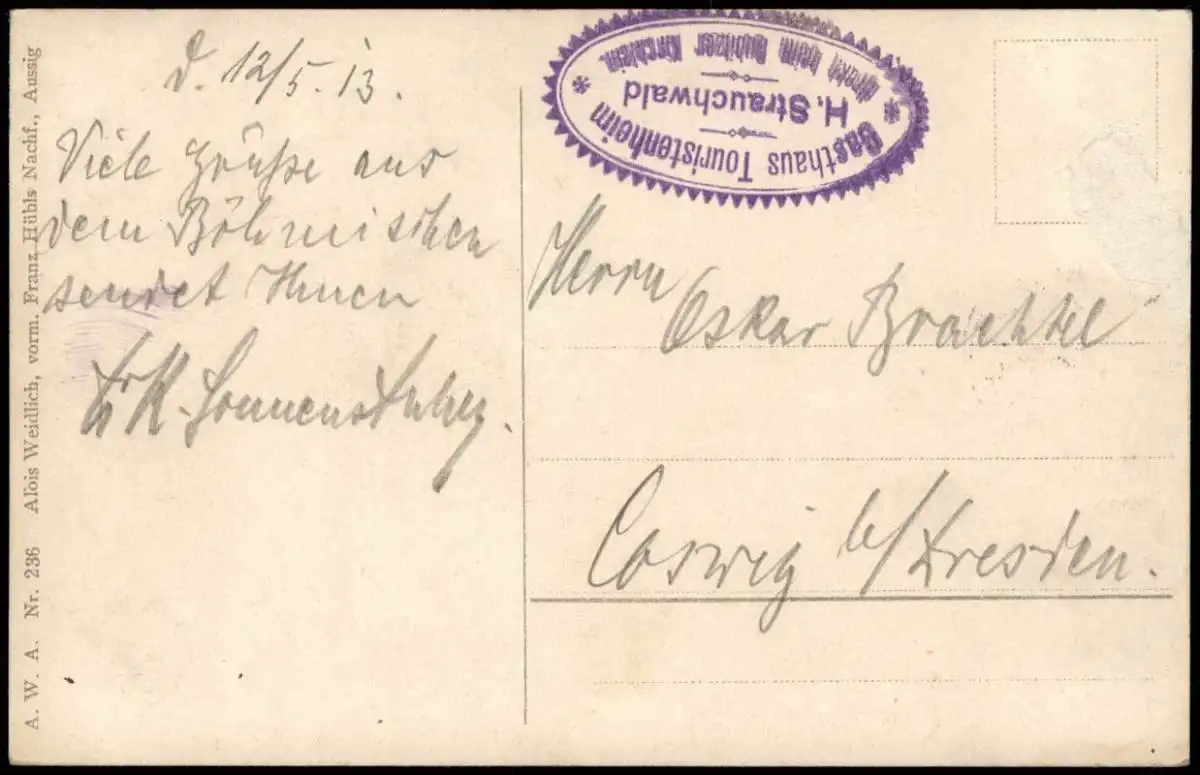 D. 12/5. 13.
Viele Grüße aus
dem Böhmischen
sendet Ihnen
Gasthaus Touristenheim
H. Strauchwald
direkt beim Dubitzer Kirchlein.
Herrn
Oskar Brachtel
Coswig b/Dresden.
A. W. A. Nr. 236 Alois Weidlich, vorm. Franz Hübls Nachf., Aussig